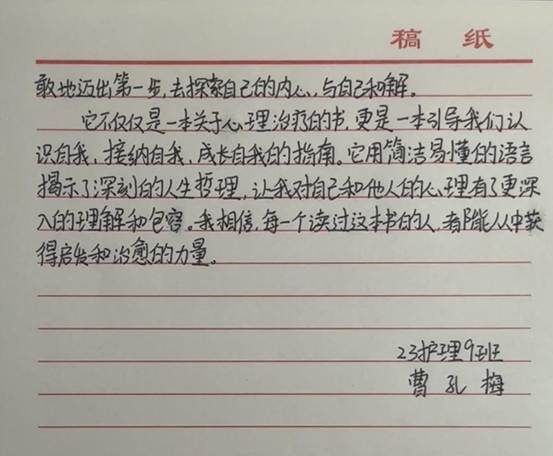 稿 纸
敢地迈出第一步,去探索自己的内心,与自己和解。
它不仅仅是一本关于心理治疗的书,更是一本引导我们认
识自我,接纳自我,成长自我的指南。它用简洁易懂的语言
揭示了深刻的人生哲理,让我对自己和他人的心理有了更深
入的理解和包容。我相信,每一个读过这本书的人,都能从中获
得启发和治愈的力量。
23护理9班
曹孔梅